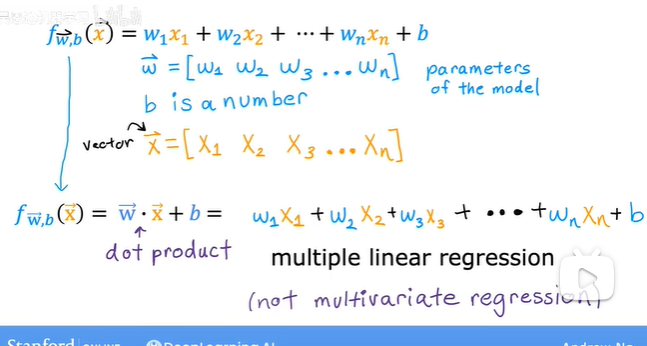 f_w⃗,b(x⃗) = w₁x₁ + w₂x₂ + ··· + wₙxₙ + b
w⃗ = [w₁ w₂ w₃ ... wₙ] parameters
of the model
b is a number
vector x⃗ = [x₁ x₂ x₃ ... xₙ]
f_w⃗,b(x⃗) = w⃗ · x⃗ + b = w₁x₁ + w₂x₂ + w₃x₃ + ··· + wₙxₙ + b
dot product
multiple linear regression
(not multivariate regression)
Stanford DeepLearning.AI Andrew Ng